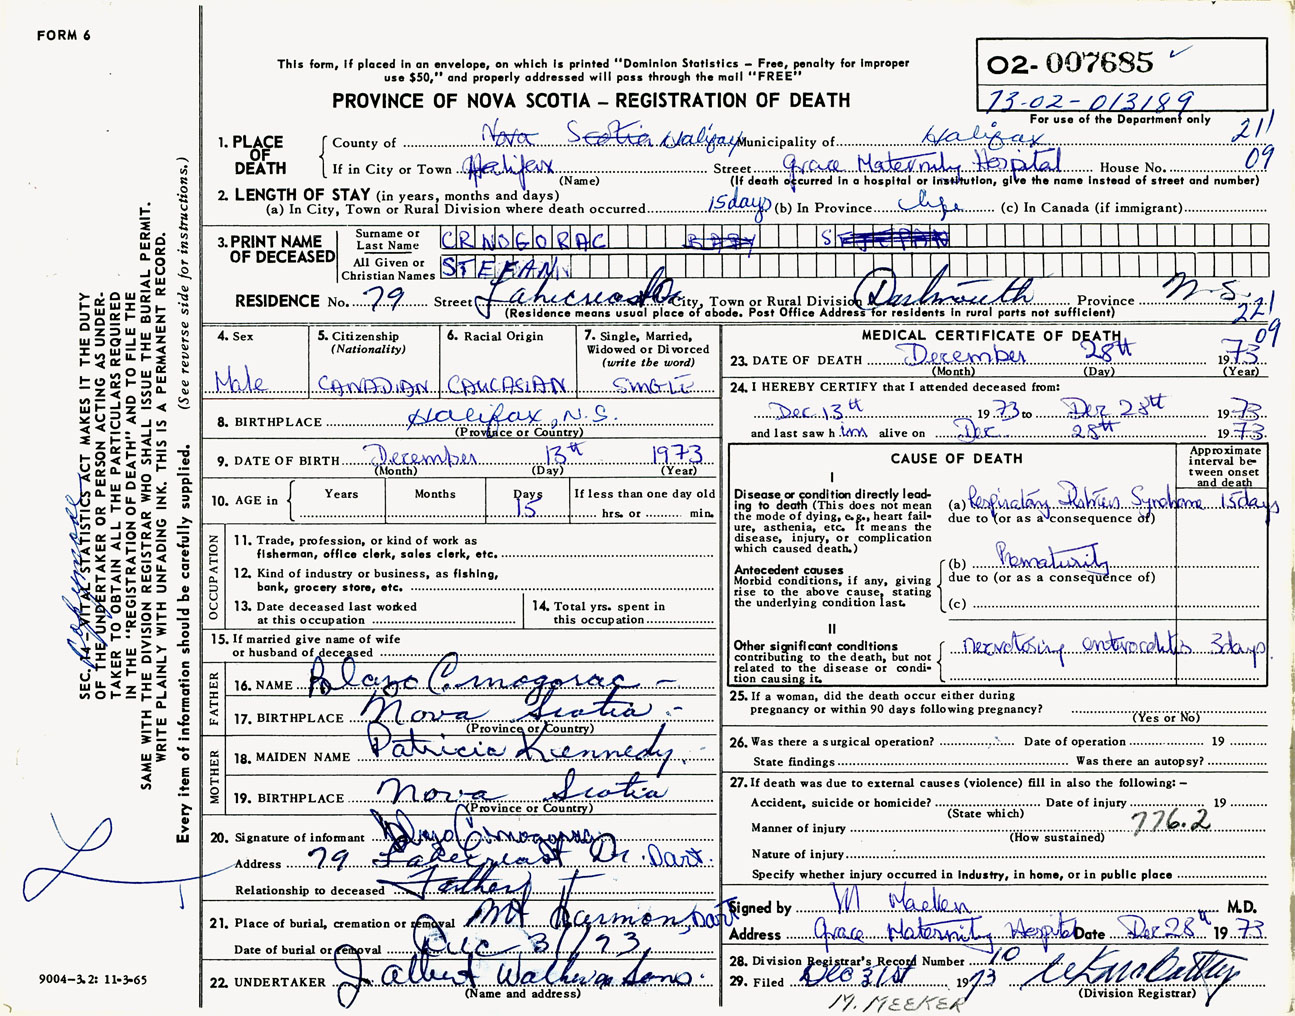 FORM 6
This form, if placed in an envelope, on which is printed "Dominion Statistics – Free, penalty for improper
use $50," and properly addressed will pass through the mail "FREE"
PROVINCE OF NOVA SCOTIA – REGISTRATION OF DEATH
02-007685
73-02-013189
For use of the Department only
211
09
1. PLACE OF DEATH
County of Nova Scotia Halifax Municipality of Halifax
If in City or Town Halifax Street Grace Maternity Hospital House No.
(Name) (If death occurred in a hospital or institution, give the name instead of street and number)
2. LENGTH OF STAY (in years, months and days)
(a) In City, Town or Rural Division where death occurred 15 days (b) In Province Life (c) In Canada (if immigrant)
3. PRINT NAME OF DECEASED
Surname or Last Name CRNOGORAC BABY S
All Given or Christian Names STEFAN
RESIDENCE No. 79 Street Lakecrest Dr City, Town or Rural Division Dartmouth Province N.S.
(Residence means usual place of abode. Post Office Address for residents in rural parts not sufficient)
221
09
4. Sex
Male
5. Citizenship
(Nationality)
CANADIAN
6. Racial Origin
CAUCASIAN
7. Single, Married,
Widowed or Divorced
(write the word)
SINGLE
8. BIRTHPLACE Halifax, N.S.
(Province or Country)
9. DATE OF BIRTH December 13th 1973
(Month) (Day) (Year)
10. AGE in Years Months Days If less than one day old
15 hrs. or min.
OCCUPATION
11. Trade, profession, or kind of work as
fisherman, office clerk, sales clerk, etc.
12. Kind of industry or business, as fishing,
bank, grocery store, etc.
13. Date deceased last worked
at this occupation
14. Total yrs. spent in
this occupation
15. If married give name of wife
or husband of deceased
FATHER
16. NAME Blazo Crnogorac –
17. BIRTHPLACE Nova Scotia –
(Province or Country)
MOTHER
18. MAIDEN NAME Patricia Kennedy
19. BIRTHPLACE Nova Scotia
(Province or Country)
20. Signature of informant Blazo Crnogorac
Address 79 Lakecrest Dr. Dart.
Relationship to deceased Father
21. Place of burial, cremation or removal Mt Harmon, Dart
Date of burial or removal Dec 31/73
22. UNDERTAKER J Albert Walker & Sons
(Name and address)
MEDICAL CERTIFICATE OF DEATH
23. DATE OF DEATH December 28th 1973
(Month) (Day) (Year)
24. I HEREBY CERTIFY that I attended deceased from:
Dec 13th 1973 to Dec 28th 1973
and last saw him alive on Dec 28th 1973
CAUSE OF DEATH
Approximate
interval be-
tween onset
and death
I
Disease or condition directly lead-
ing to death (This does not mean
the mode of dying, e.g., heart fail-
ure, asthenia, etc. It means the
disease, injury, or complication
which caused death.)
(a) Respiratory Distress Syndrome 15 days
due to (or as a consequence of)
Antecedent causes
Morbid conditions, if any, giving
rise to the above cause, stating
the underlying condition last.
(b) Prematurity
due to (or as a consequence of)
(c)
II
Other significant conditions
contributing to the death, but not
related to the disease or condi-
tion causing it.
Necrotosing enterocolitis 3 days
25. If a woman, did the death occur either during
pregnancy or within 90 days following pregnancy?
(Yes or No)
26. Was there a surgical operation? Date of operation 19
State findings Was there an autopsy?
27. If death was due to external causes (violence) fill in also the following: –
Accident, suicide or homicide? Date of injury 19
(State which)
Manner of injury 776.2
(How sustained)
Nature of injury
Specify whether injury occurred in industry, in home, or in public place
Signed by M Meeker M.D.
Address Grace Maternity Hospital Date Dec 28th 1973
28. Division Registrar's Record Number 10
29. Filed Dec 31st 1973
(Division Registrar)
M. MEEKER
SEC. 14–VITAL STATISTICS ACT MAKES IT THE DUTY
OF THE UNDERTAKER OR PERSON ACTING AS UNDER-
TAKER TO OBTAIN ALL THE PARTICULARS REQUIRED
IN THE "REGISTRATION OF DEATH" AND TO FILE THE
SAME WITH THE DIVISION REGISTRAR WHO SHALL ISSUE THE BURIAL PERMIT.
WRITE PLAINLY WITH UNFADING INK. THIS IS A PERMANENT RECORD.
Every item of information should be carefully supplied. (See reverse side for instructions.)
9004–3.2: 11-3-65